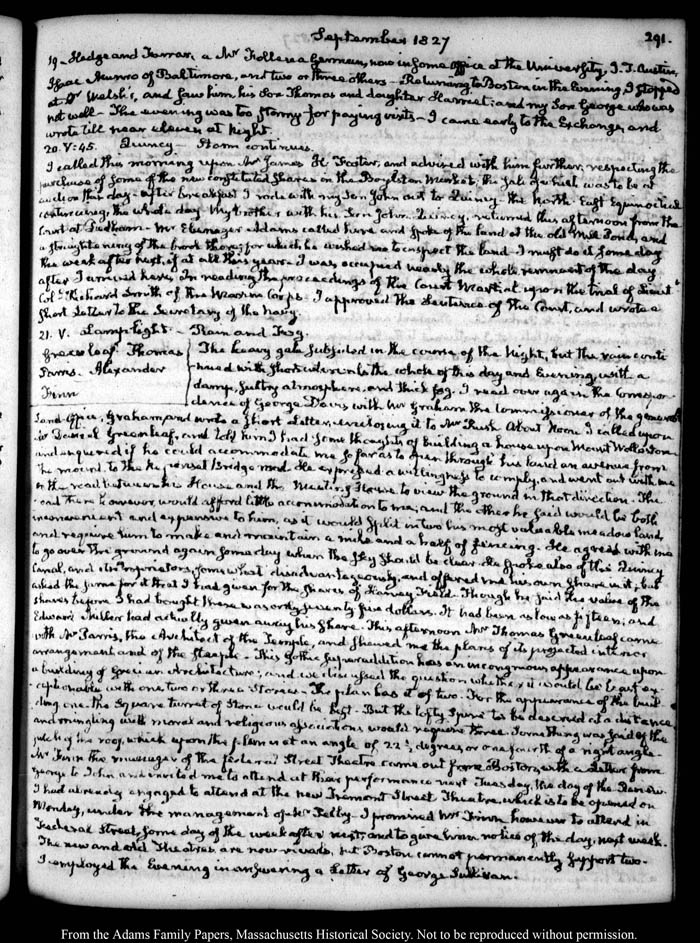 September 1827
291.
19 - Hedge and Farrar, a Mr Follen a German, now in some office at the University, J. T. Austin,
Isaac Munro of Baltimore, and two or three others - Returning to Boston in the Evening, I stopped
at Dr Welsh's, and saw him, his Son Thomas and daughter Harriet; and my Son George who was
not well - The evening was too stormy for paying visits - I came early to the Exchange, and
wrote till near eleven at Night.
20. V:45. Quincy - Storm continues.
I called this morning upon Mr James H. Foster, and advised with him further, respecting the
purchase of some of the new constituted shares in the Boylston Market, the sale of which was to be at
auction this day - After breakfast I rode with my Son John out to Quincy - the North-East Equinoctial
continuing, the whole day. My brother with his Son John Quincy, returned this afternoon from the
Court at Dedham - Mr Ebenezer Adams called here and spoke of the land at the old Mill Pond, and
a straightening of the brook there; for which he wished me to inspect the land - I might do it some day
the week after next, if at all this year - I was occupied nearly the whole remnant of the day
after I arrived here, in reading the proceedings of the Court Martial, upon the trial of Lieutt
Coll Richard Smith of the Marine Corps - I approved the Sentence of the Court, and wrote a
short Letter to the Secretary of the Navy.
21. V. Lamp-light - Rain and Fog.
Greenleaf Thomas
Parris. Alexander
Finn
The heavy gale subsided in the course of the Night, but the rain conti
nued with short intervals the whole of this day and Evening, with a
damp, sultry atmosphere, and thick fog. I read over again the Correspon
dence of George Davis with Mr Graham the Commissioner of the general
Land-Office, Graham, and wrote a short Letter, enclosing it to Mr Rush. About Noon I called upon
Mr Daniel Greenleaf, and told him I had some thoughts of building a house upon Mount Wollaston
and enquired if he could accommodate me so far as to open through his land an avenue from
the mound to the Neponset Bridge road. He expressed a willingness to comply, and went out with me
on the road between his House and the Meeting House to view the ground in that direction. The
road there however, would afford little accommodation to me; and the other he said would be both
inconvenient and expensive to him, as it would split in two his most valuable meadow land,
and require him to make and maintain a mile and a half of fencing. He agreed with me
to go over the ground again some day when the sky should be clear. He spoke also of this Quincy
Canal, and its proprietors, somewhat disadvantageously, and offered me his own share in it; but
asked the same for it that I had given for the shares of Harvey Field. Though he said the value of the
shares before I had bought these was only seventy five dollars. It had been as low as fifteen; and
Edward Miller had actually given away his share. This afternoon Mr Thomas Greenleaf came
with Mr Parris, the Architect of the Temple, and shewed me the plans of its projected interior
arrangement and of the steeple. This Gothic superaddition has an incongruous appearance upon
a building of Grecian Architecture; and we discussed the question whether it would be least ex-
ceptionable with one two or three stories - The plan has it of two. For the appearance of the buil
ding one, the square turret of stone would be best - But the lofty Spire to be descried at a distance
and mingling with moral and religious associations would require three. Something was said of the
pitch of the roof, which upon the plan is at an angle of 22 ½ degrees, or one fourth of a right angle.
Mr Finn the manager of the Federal Street Theatre came out from Boston, with a Letter from
George to John and invited me to attend at their performance next Tuesday, the day of the Review.
I had already engaged to attend at the new Tremont Street Theatre, which is to be opened on
Monday, under the management of Mr Pelby. I promised Mr Finn however to attend in
Federal Street, some day of the week after next, and to give him notice of the day, next week.
The new and old Theatres are now rivals, but Boston cannot permanently support two.
I employed the Evening in answering a Letter of George Sullivan.
From the Adams Family Papers, Massachusetts Historical Society. Not to be reproduced without permission.